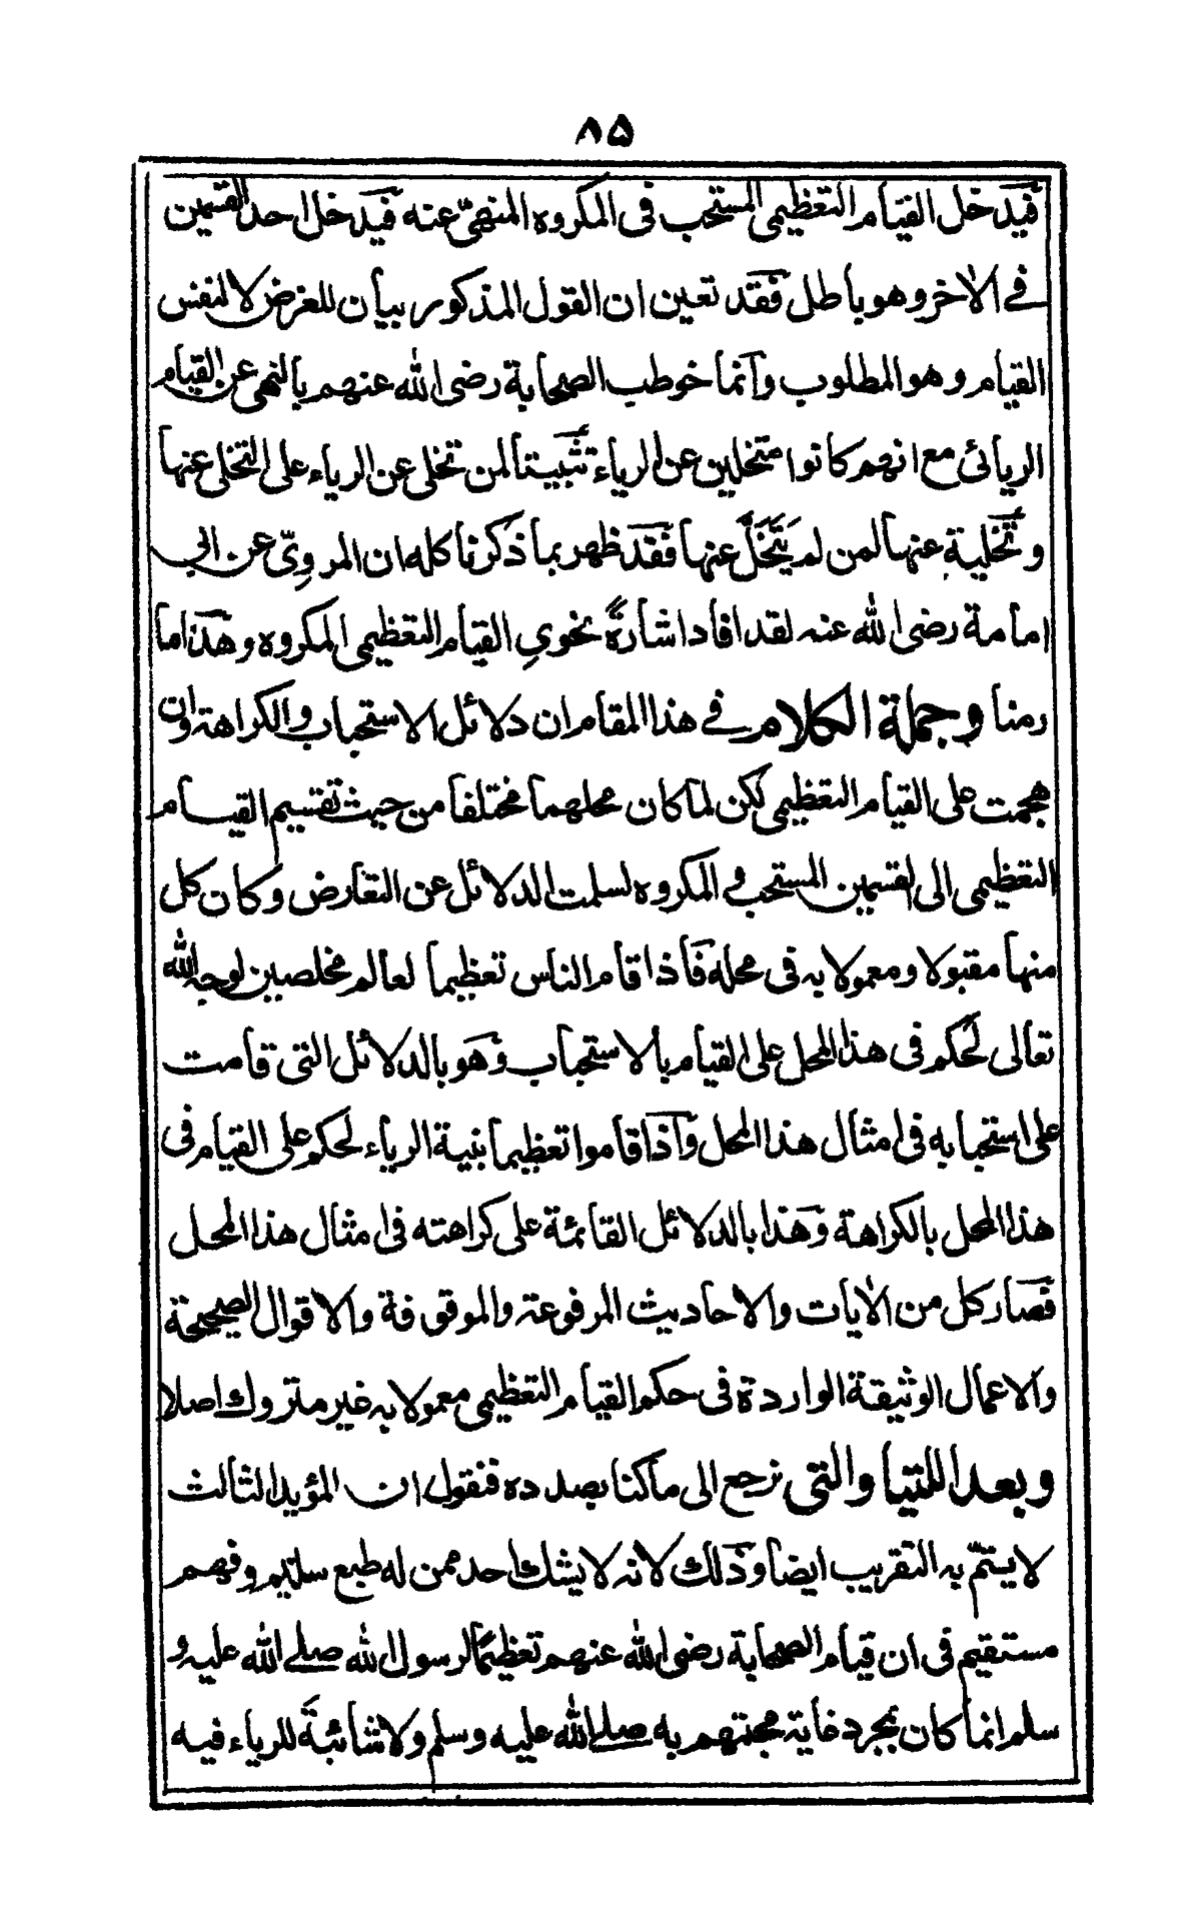 ٨٥
فيدخل القيام التعظيمى المستحب فى المكروه المنهىّ عنه فيدخل احد القسمين
فے الاٰخر وهو باطل فقد تعين ان القول المذكور بيان للغرض لا لنفس
القيام وهو المطلوب وانما خوطب الصحابة رضى الله عنهم بالنهى عن القيام
الريائى مع انهم كانوا متخلين عن الرياء تثبيتا لمن تخلى عن الرياء على التخلى عنها
وتخلية عنها لمن لم يَتَخَلَّ عنها فقد ظهر بما ذكرنا كله ان المروىّ عن ابى
امامة رضى الله عنه لقد افاد اشارةً نحوى القيام التعظيمى المكروه وهذا ما
رمنا وجملة الكلام فے هذا المقام ان دلائل الاستحباب والكراهة وان
هجمت على القيام التعظيمى لكن لما كان محلهما مختلفا من حيث تقسيم القيام
التعظيمى الى القسمين المستحب والمكروه لسلمت الدلائل عن التعارض وكان كل
منها مقبولا ومعمولا به فى محله فاذا قام الناس تعظيما لعالم مخلصين لوجه الله
تعالى لحكم فى هذا المحل على القيام بالاستحباب وهو بالدلائل التى قامت
على استحبابه فى امثال هذا المحل واذا قاموا تعظيما بنية الرياء لحكم على القيام فى
هذا المحل بالكراهة وهذا بالدلائل القائمة على كراهته فى امثال هذا المحل
فصار كل من الاٰيات والاحاديث المرفوعة والموقوفة والاقوال الصحيحة
والاعمال الوثيقة الواردة فى حكم القيام التعظيمى معمولا به غير متروك اصلا
وبعد اللتيا والتى نرجع الى ما كنا بصدده فنقول ان المؤيد الثالث
لا يتمّ به التقريب ايضا وذلك لانه لا يشك احد ممن له طبع سليم وفهم
مستقيم فى ان قيام الصحابة رضى الله عنهم تعظيمًا لرسول الله صلے الله عليه و
سلم انما كان بمجرد غاية محبتهم به صلے الله عليه وسلم ولا شائبة للرياء فيه